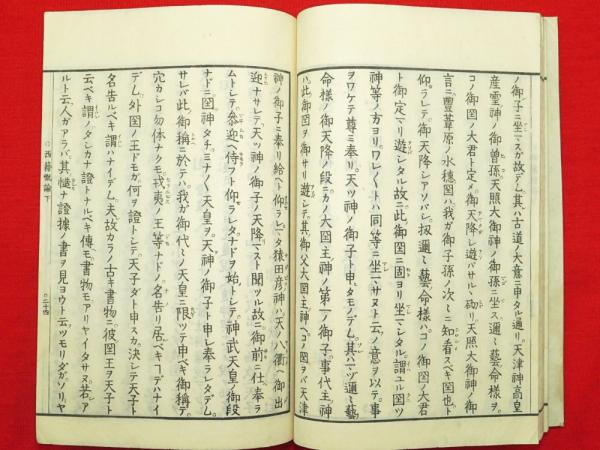 ノ御子ニ坐マスガ故デム其ハ古道ノ大意ニ申タル通リ天津神高皇
産霊神ノ御曽孫天照大御神ノ御孫ニ坐ス邇々藝命様ヲ
コノ御国ノ大君ト定メ御天降シ遊バサル砌リ天照大御神ノ御
言ニ豊葦原ノ水穂国ハ我ガ御子孫ノ次々ニ知看スベキ国也ト
仰ラレテ御天降シアソバシ扨邇々藝命様ハコノ御国ノ大君
ト御定マリ遊バシタル故ニ此御国ニ固ヨリ坐マシタル謂ユル国ツ
神等ノ方ヨリワレ〱トハ同等ニ坐マサヌト云ノ意ヲ以テ事
ヲワケテ尊ミ奉リ天ツ神ノ御子ト申タモノデム其ハマヅ邇々藝
命様ノ御天降ノ段ニカノ大国主神ノ第一ノ御子事代主神
ハ此御国ヲ御サリ遊シテ其御父大国主神ヘコノ国ヲバ天津
神ノ御子ニ奉リ給ヘト仰ラレマタ猿田彦神ハ天ノ八衢ヘ御出
迎ナサレテ天ッ神ノ御子ノ天降マスト聞ツル故ニ御前ニ仕奉ラ
ムトシテ参迎ヘ侍フト仰ラレタナドヲ始トシテ神武天皇ノ御段
ナドモ国神タチミナ〱天皇ヲ天神ノ御子ト申シ奉ラレタデム
サレバ此御称ニ於テハ我ガ御代々ノ天皇ニ限ツテ申ベキ御称デ
穴カシコ勿体ナクモ戎夷ノ王等ナドノ名告リ居ベキコデハナイ
デム外国ノ王ドモガ何ヲ證トシテ天子ダト申スカ決シテ天子ト
名告ルベキ謂ハナイデム夫故カラノ古キ書物ニ彼国王ヲ天子ト
云ベキ謂ノタシカナ證トナルベキ傳モ書物モアリヤイタサヌ若シア
ルト云人ガアラバ其慥ナ證據ノ書ヲ見ヨウト云ツモリダガソリヤ
○西籍慨論下
○二十四